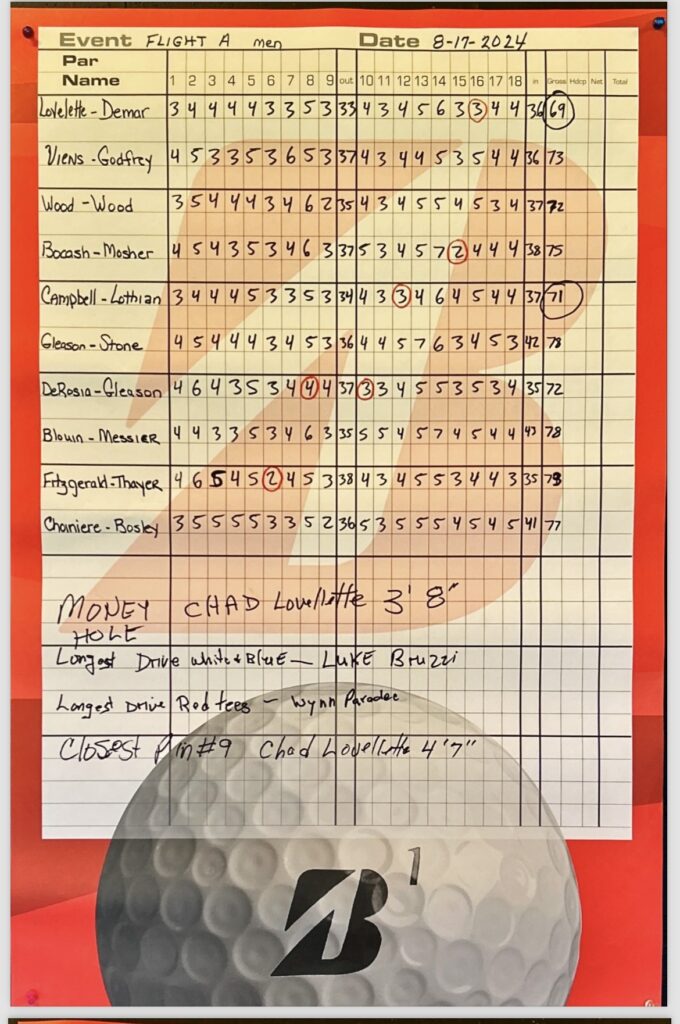 Event FLIGHT A men Date 8-17-2024
Par
Name 1 2 3 4 5 6 7 8 9 out 10 11 12 13 14 15 16 17 18 in Gross Hdcp Net Total
Lovelette - Demar 3 4 4 4 4 3 3 5 3 33 4 3 4 5 6 3 3 4 4 36 69
Viens - Godfrey 4 5 3 3 5 3 6 5 3 37 4 3 4 4 5 3 5 4 4 36 73
Wood - Wood 3 5 4 4 4 3 4 6 2 35 4 3 4 5 5 4 5 3 4 37 72
Bocash - Mosher 4 5 4 3 5 3 4 6 3 37 5 3 4 5 7 2 4 4 4 38 75
Campbell - Lothian 3 4 4 4 5 3 3 5 3 34 4 3 3 4 6 4 5 4 4 37 71
Gleason - Stone 4 5 4 4 4 3 4 5 3 36 4 4 5 7 6 3 4 5 3 42 78
DeRosia - Gleason 4 6 4 3 5 3 4 4 4 37 3 3 4 5 5 3 5 3 4 35 72
Blouin - Messier 4 4 3 3 5 3 4 6 3 35 5 5 4 5 7 4 5 4 4 43 78
Fitzgerald - Thayer 4 6 5 4 5 2 4 5 3 38 4 3 4 5 5 3 4 4 3 35 73
Chaniere - Bosley 3 5 5 5 5 3 3 5 2 36 5 3 5 5 5 4 5 4 5 41 77
MONEY CHAD Lovellette 3' 8"
HOLE
Longest Drive white & BluE — LUKE Bruzzi
Longest Drive Red tees - Wynn Paradee
Closest Pin #9 Chad Lovellette 4'7"
B
1